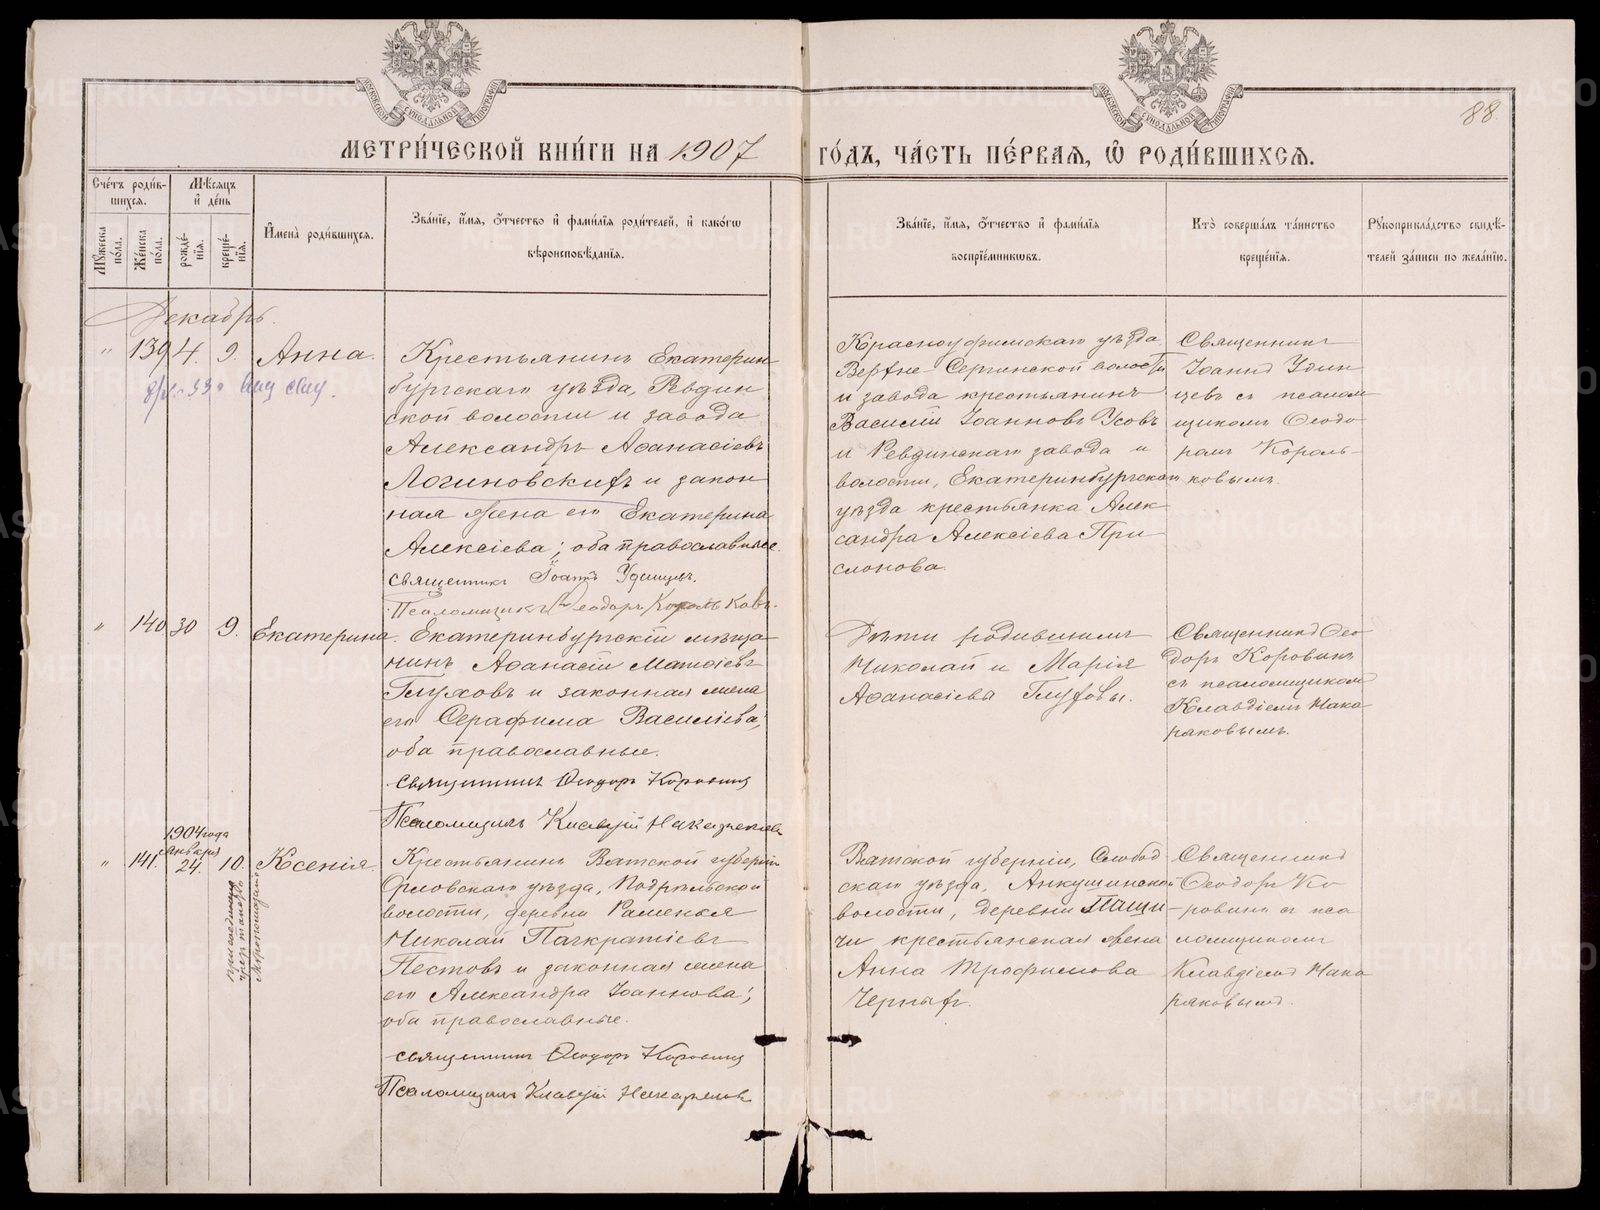 88.
МЕТРИ́ЧЕСКОЙ КНИ́ГИ НА 1907 ГО́ДЪ, ЧА́СТЬ ПЕ́РВАѦ, Ѿ РОДИ́ВШИХСѦ.
Сче́тъ роди́в-
шихсѧ.
Мꙋ́жеска по́ла.
Же́нска по́ла.
Мѣ́сѧцъ и де́нь
рожде́-
нїѧ.
креще́-
нїѧ.
И҆мена̀ роди́вшихсѧ.
Зва́нїе, и҆́мѧ, ѻ҆́тчество и҆ фами́лїѧ роди́телей, и҆ како́гѡ
вѣроисповѣ́данїѧ.
Зва́нїе, и҆́мѧ, ѻ҆́тчество и҆ фами́лїѧ
воспрїе́мникѡвъ.
Кто̀ соверша́лъ та́инство
креще́нїѧ.
Рꙋкоприкла́дство свидѣ́-
телей за́писи по жела́нїю.
Декабрь.
" 139 4. 9. Анна.
Крестьянинъ Екатерин
бургскаго уѣзда, Ревдин
ской волости и завода
Александръ Аѳанасіевъ
Логиновскихъ и закон
ная жена его Екатерина
Алексіева; оба православные.
Священникъ Іоаннъ Удинцевъ.
Псаломщикъ Ѳеодоръ Корольковъ.
Красноуфимскаго уѣзда
Верхне Сергинской волости
и завода крестьянинъ
Василій Іоанновъ Усовъ
и Ревдинскаго завода и
волости, Екатеринбургскаго
уѣзда крестьянка Алек
сандра Алексіева При
слонова.
Священникъ
Іоаннъ Удин
цевъ съ псалом
щикомъ Ѳеодо
ромъ Король-
ковымъ.
" 140 30 9. Екатерина.
Екатеринбургскій мѣща
нинъ Аѳанасій Матѳіевъ
Глуховъ и законная жена
его Серафима Василіева;
оба православные.
Священникъ Ѳеодоръ Коровинъ
Псаломщикъ Клавдій Накаряковъ
Дѣти родившимъ
Николай и Марія
Аѳанасіевы Глуховы.
Священникъ Ѳео
доръ Коровинъ
съ псаломщикомъ
Клавдіемъ Нака
ряковымъ.
1904 года
Января
" 141. 24. 10. Ксенія.
присоединена
чрезъ таинство
Миропомазанія
Крестьянинъ Вятской губерніи
Орловскаго уѣзда, Подрѣльской
волости, деревни Раменья
Николай Панкратіевъ
Пестовъ и законная жена
его Александра Іоаннова;
оба православные.
Священникъ Ѳеодоръ Коровинъ
Псаломщикъ Клавдій Накаряковъ
Вятской губерніи, Слобод
скаго уѣзда, Анкушинской
волости, деревни Пащи-
чи крестьянская жена
Анна Трофимова
Черныхъ.
Священникъ
Ѳеодоръ Ко
ровинъ съ пса
ломщикомъ
Клавдіемъ Нака
ряковымъ.